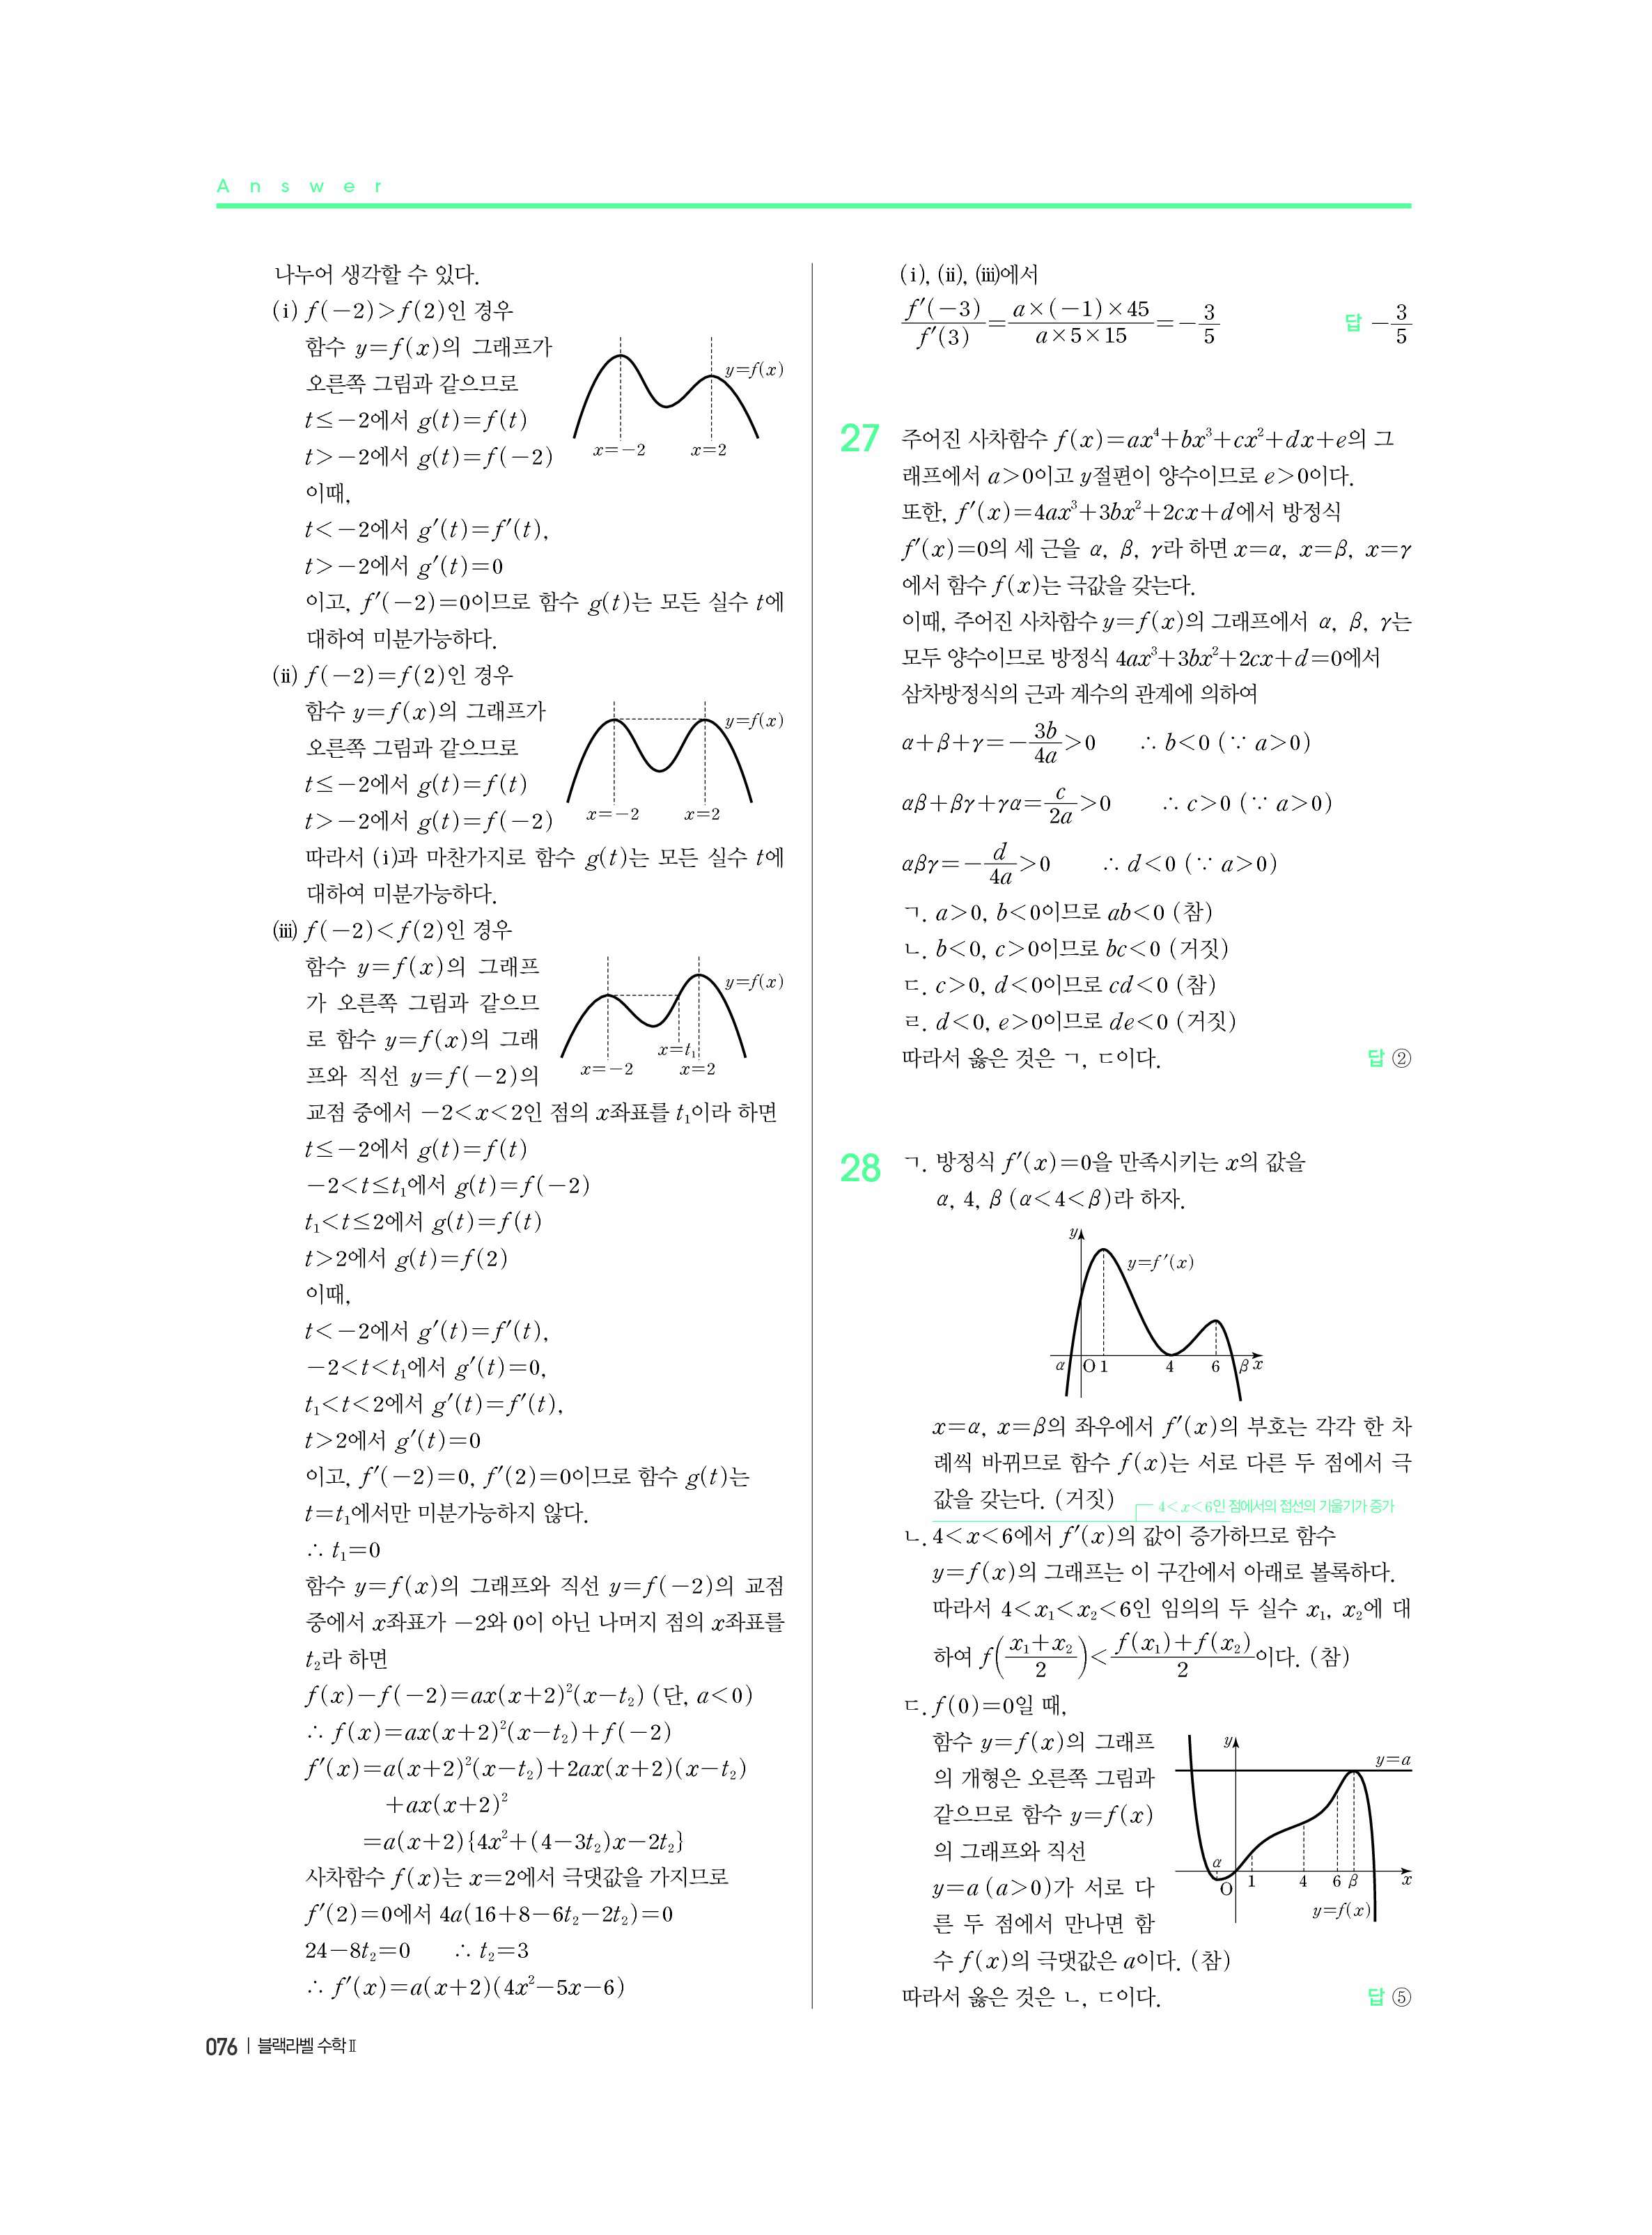 Answer
나누어 생각할 수 있다.
(ⅰ) f(−2)>f(2)인 경우
함수 y=f(x)의 그래프가
오른쪽 그림과 같으므로
t≤−2에서 g(t)=f(t)
t>−2에서 g(t)=f(−2)
y=f(x)
x=−2 x=2
이때,
t<−2에서 g′(t)=f′(t),
t>−2에서 g′(t)=0
이고, f′(−2)=0이므로 함수 g(t)는 모든 실수 t에
대하여 미분가능하다.
(ⅱ) f(−2)=f(2)인 경우
함수 y=f(x)의 그래프가
오른쪽 그림과 같으므로
t≤−2에서 g(t)=f(t)
t>−2에서 g(t)=f(−2)
y=f(x)
x=−2 x=2
따라서 (ⅰ)과 마찬가지로 함수 g(t)는 모든 실수 t에
대하여 미분가능하다.
(ⅲ) f(−2)<f(2)인 경우
함수 y=f(x)의 그래프
가 오른쪽 그림과 같으므
로 함수 y=f(x)의 그래
프와 직선 y=f(−2)의
y=f(x)
x=t₁
x=−2 x=2
교점 중에서 −2<x<2인 점의 x좌표를 t₁이라 하면
t≤−2에서 g(t)=f(t)
−2<t≤t₁에서 g(t)=f(−2)
t₁<t≤2에서 g(t)=f(t)
t>2에서 g(t)=f(2)
이때,
t<−2에서 g′(t)=f′(t),
−2<t<t₁에서 g′(t)=0,
t₁<t<2에서 g′(t)=f′(t),
t>2에서 g′(t)=0
이고, f′(−2)=0, f′(2)=0이므로 함수 g(t)는
t=t₁에서만 미분가능하지 않다.
∴ t₁=0
함수 y=f(x)의 그래프와 직선 y=f(−2)의 교점
중에서 x좌표가 −2와 0이 아닌 나머지 점의 x좌표를
t₂라 하면
f(x)−f(−2)=ax(x+2)²(x−t₂) (단, a<0)
∴ f(x)=ax(x+2)²(x−t₂)+f(−2)
f′(x)=a(x+2)²(x−t₂)+2ax(x+2)(x−t₂)
+ax(x+2)²
=a(x+2){4x²+(4−3t₂)x−2t₂}
사차함수 f(x)는 x=2에서 극댓값을 가지므로
f′(2)=0에서 4a(16+8−6t₂−2t₂)=0
24−8t₂=0 ∴ t₂=3
∴ f′(x)=a(x+2)(4x²−5x−6)
(ⅰ), (ⅱ), (ⅲ)에서
f′(−3)/f′(3)=a×(−1)×45/a×5×15=−3/5 답 −3/5
27 주어진 사차함수 f(x)=ax⁴+bx³+cx²+dx+e의 그
래프에서 a>0이고 y절편이 양수이므로 e>0이다.
또한, f′(x)=4ax³+3bx²+2cx+d에서 방정식
f′(x)=0의 세 근을 α, β, γ라 하면 x=α, x=β, x=γ
에서 함수 f(x)는 극값을 갖는다.
이때, 주어진 사차함수 y=f(x)의 그래프에서 α, β, γ는
모두 양수이므로 방정식 4ax³+3bx²+2cx+d=0에서
삼차방정식의 근과 계수의 관계에 의하여
α+β+γ=−3b/4a>0 ∴ b<0 (∵ a>0)
αβ+βγ+γα=c/2a>0 ∴ c>0 (∵ a>0)
αβγ=−d/4a>0 ∴ d<0 (∵ a>0)
ㄱ. a>0, b<0이므로 ab<0 (참)
ㄴ. b<0, c>0이므로 bc<0 (거짓)
ㄷ. c>0, d<0이므로 cd<0 (참)
ㄹ. d<0, e>0이므로 de<0 (거짓)
따라서 옳은 것은 ㄱ, ㄷ이다. 답 ②
28 ㄱ. 방정식 f′(x)=0을 만족시키는 x의 값을
α, 4, β (α<4<β)라 하자.
y
y=f′(x)
α O 1 4 6 β x
x=α, x=β의 좌우에서 f′(x)의 부호는 각각 한 차
례씩 바뀌므로 함수 f(x)는 서로 다른 두 점에서 극
값을 갖는다. (거짓)
4<x<6인 점에서의 접선의 기울기가 증가
ㄴ. 4<x<6에서 f′(x)의 값이 증가하므로 함수
y=f(x)의 그래프는 이 구간에서 아래로 볼록하다.
따라서 4<x₁<x₂<6인 임의의 두 실수 x₁, x₂에 대
하여 f((x₁+x₂)/2)<(f(x₁)+f(x₂))/2이다. (참)
ㄷ. f(0)=0일 때,
함수 y=f(x)의 그래프
의 개형은 오른쪽 그림과
같으므로 함수 y=f(x)
의 그래프와 직선
y=a (a>0)가 서로 다
른 두 점에서 만나면 함
수 f(x)의 극댓값은 a이다. (참)
y
y=a
α
O 1 4 6 β x
y=f(x)
따라서 옳은 것은 ㄴ, ㄷ이다. 답 ⑤
076 | 블랙라벨 수학Ⅱ